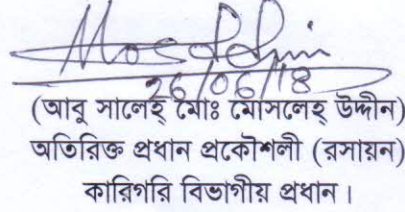 26/06/18
(আবু সালেহ্ মোঃ মোসলেহ্ উদ্দীন)
অতিরিক্ত প্রধান প্রকৌশলী (রসায়ন)
কারিগরি বিভাগীয় প্রধান।